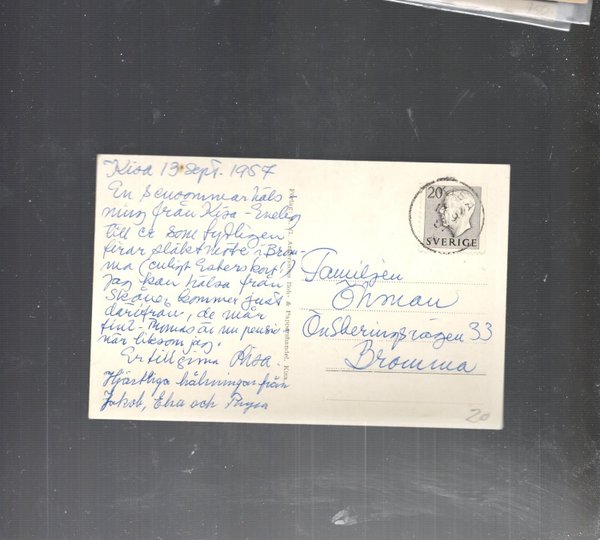 Kisa 13 Sept. 1957
En sensommarhäls
ning från Kisa
till er som tydligen
firar släktmöte i Brom
ma (enligt Esters kort!)
Jag kan hälsa från
Skåne, kommer just
därifrån, de mår
fint - Thomas är nu pensio
när liksom jag.
Er tillgivna
Hjärtliga hälsningar från
Jakob, Elsa och
Bok- & Pappershandel, Kisa
20
SVERIGE
Familjen
Öhman
Önskeringsvägen 33
Bromma
20